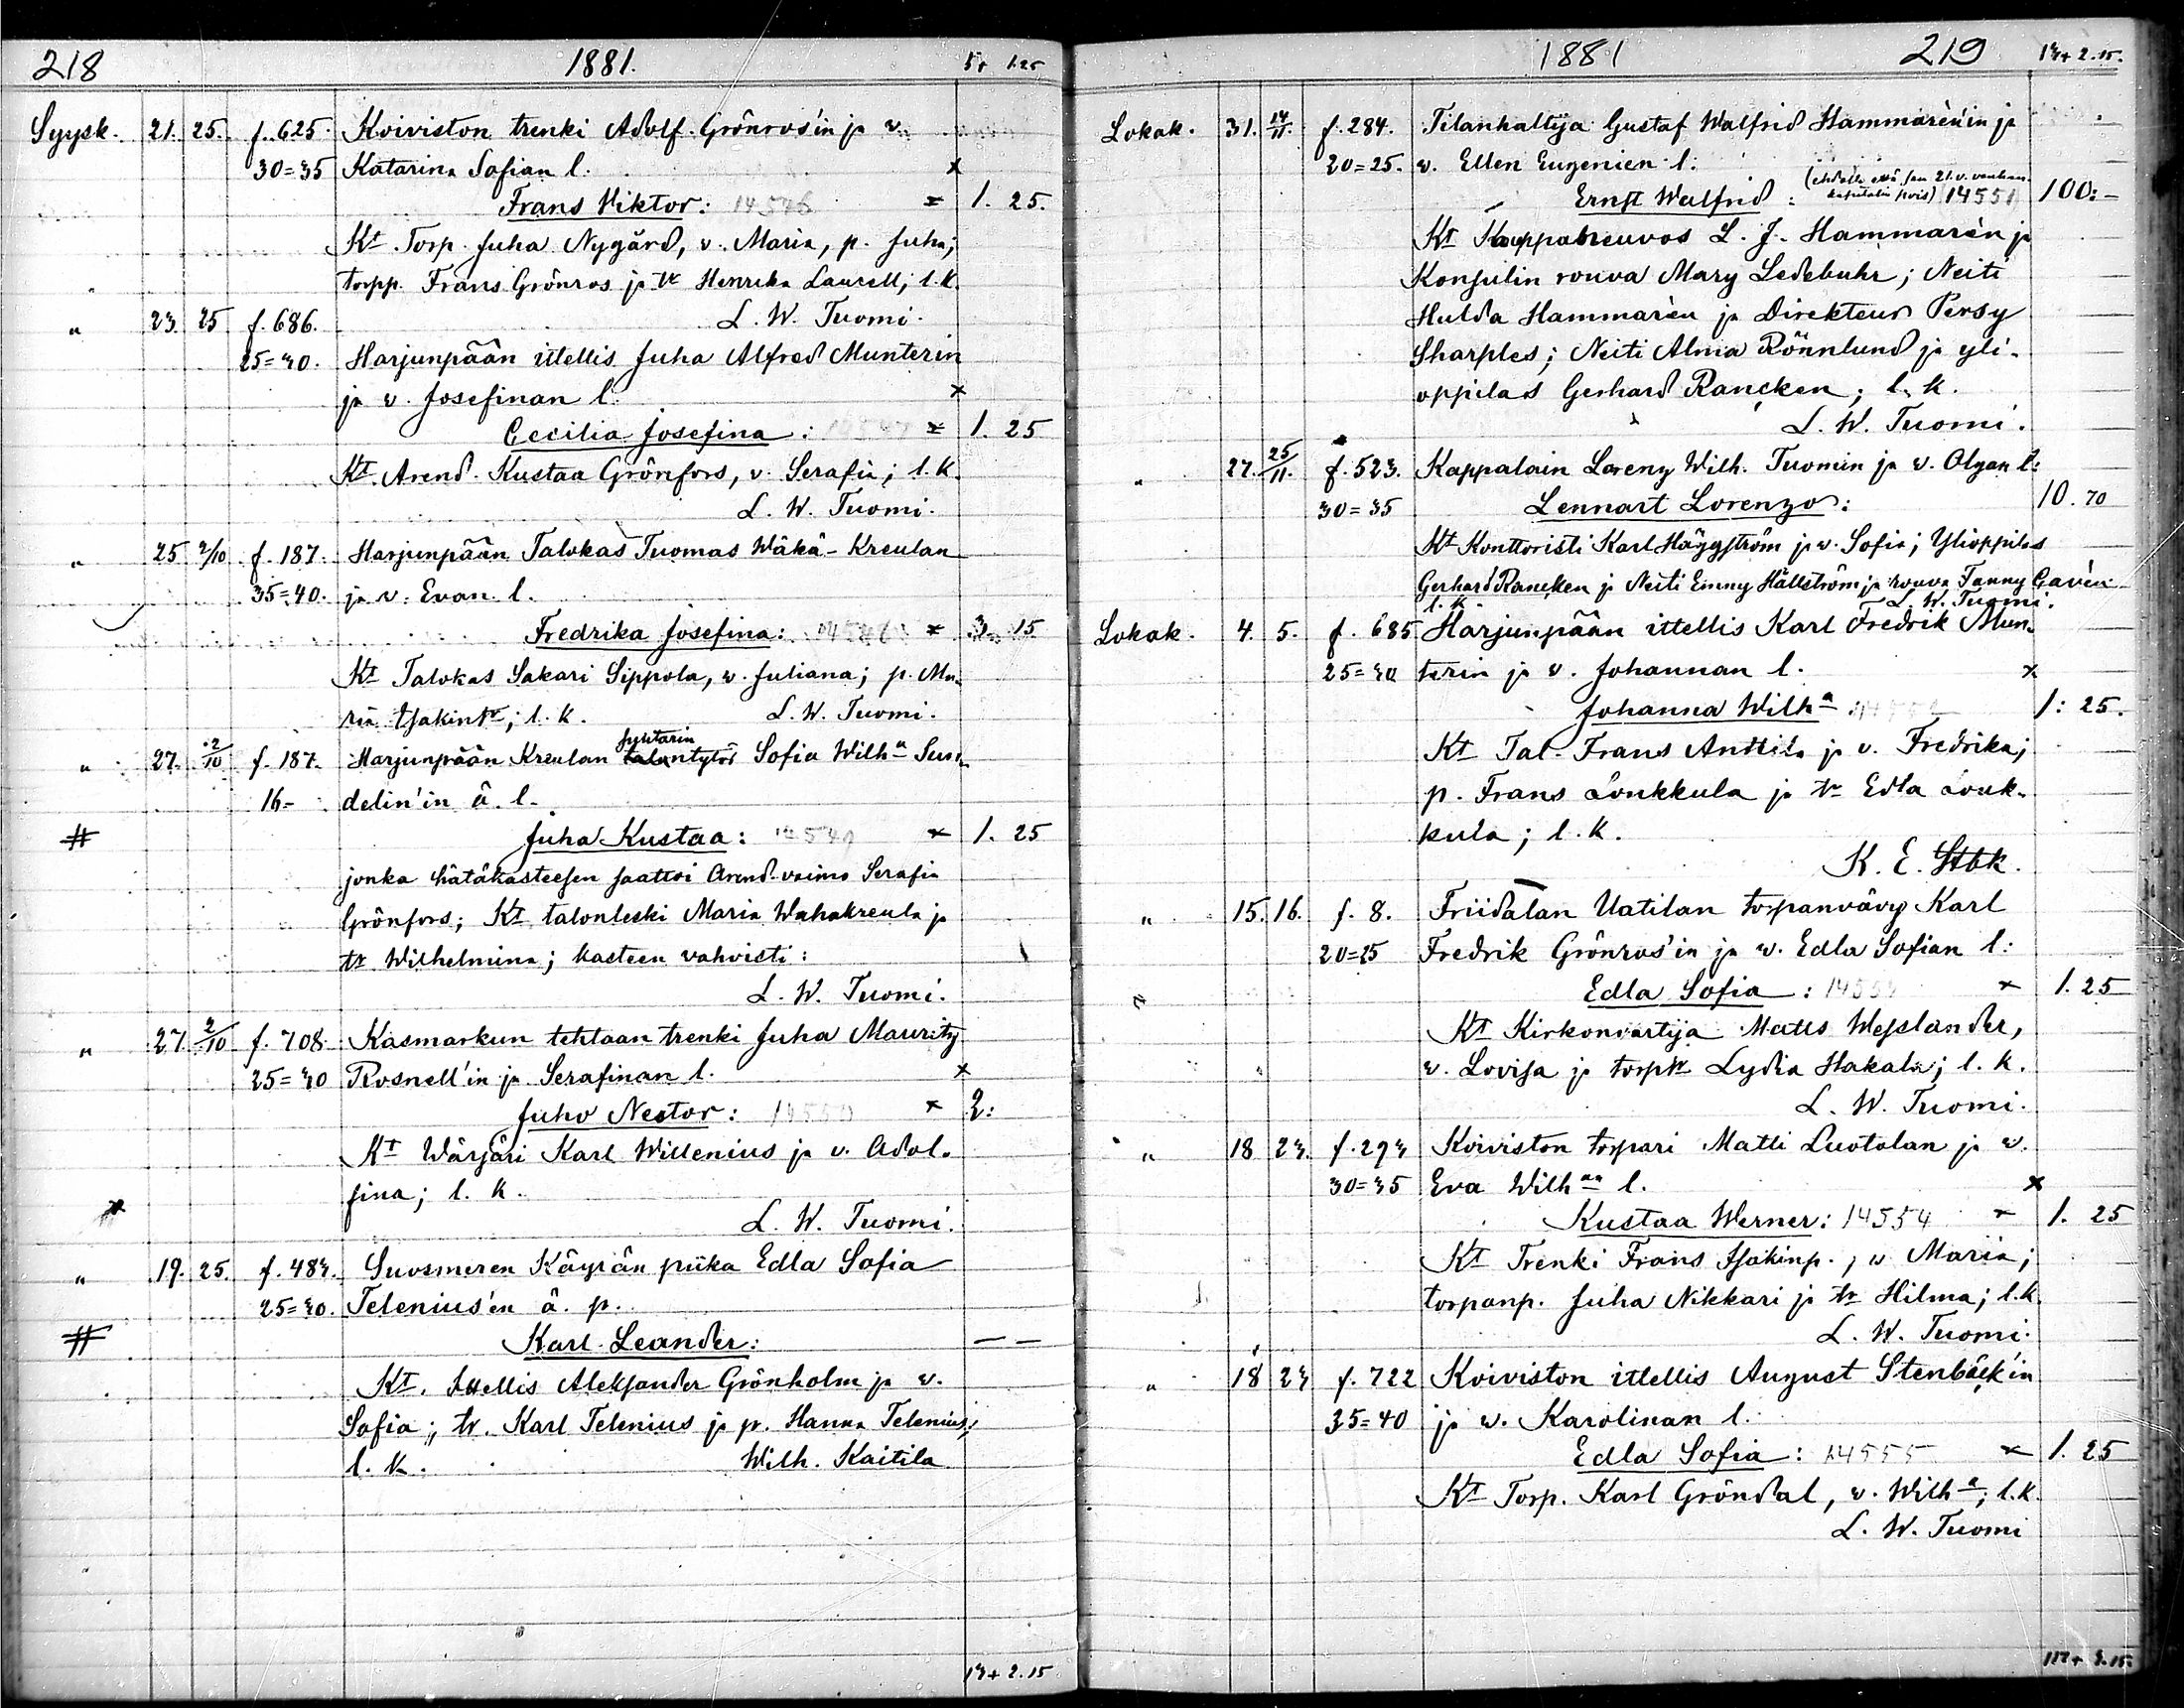 218 1881. 5+ 1.25
Syysk. 21. 25. f. 625. Koiviston trenki Adolf Grönros'in ja v.
30=35 Katarina Sofian l. x
Frans Wiktor: 14546 x 1. 25.
Kt. Torp. Juha Nygård, v. Maria, p. Juha;
torpp. Frans Grönros ja tr Henrika Laurell; l.k.
" 23. 25 f. 686. L. W. Tuomi.
25=30. Harjunpään ittellis Juha Alfred Munterin
ja v. Josefinan l. x
Cecilia Josefina: 14547 x 1. 25
Kt. Arend. Kustaa Grönfors, v. Serafia; l.k.
L. W. Tuomi.
" 25 2/10 f. 187. Harjunpään Talokas Tuomas Wäkä-Kreulan
35=40. ja v. Evan l.
Fredrika Josefina: 14548 x 3. 15
Kt Talokas Sakari Sippola, v. Juliana; p. Ma-
ria Isakintr; l. k. L. W. Tuomi.
" 27. 2/10 f. 187. Harjunpään Kreulan talontytär Sofia Wilha Sun-
16.- delin'in ä. l.
# Juha Kustaa: 14549 x 1. 25
jonka hätäkasteesen saattoi Arend. vaimo Serafia
Grönfors; Kt talonleski Maria Wahakreula ja
tr Wilhelmina; kasteen vahvisti:
L. W. Tuomi.
" 27. 2/10 f. 708. Kasmarkun tehtaan trenki Juha Mauritz
25=30 Rosnell'in ja Serafinan l. x
Juho Nestor: 14550 x 2:
Kt Wärjäri Karl Willenius ja v. Adol-
fina; l. k.
x L. W. Tuomi.
" 19. 25. f. 483. Suosmeren Käyrän piika Edla Sofia
25=30. Telenius'en ä. p.
# Karl Leander: — —
Kt. Ittellis Aleksander Grönholm ja v.
Sofia; tr. Karl Telenius ja p. Hanna Telenius;
l. k. Wilh. Kaitila
13+ 2.15
1881 219 13+ 2.15.
Lokak. 31. 14/11. f. 284. Tilanhaltija Gustaf Walfrid Hammarèn'in ja
20=25. v. Ellen Eugenien l:
Ernst Walfrid: 14551 100:-
Kt Kauppaneuvos L. J. Hammarèn ja
Konsulin rouva Mary Ledebuhr; Neiti
Hulda Hammarèn ja Direkteur Persy
Sharples; Neiti Alma Rönnlund ja yli-
oppilas Gerhard Rancken; l. k.
L. W. Tuomi.
" 27. 25/11. f. 523. Kappalain Lorenz Wilh. Tuomin ja v. Olgan l:
30=35 Lennart Lorenzo: 10. 70
Kt Konttoristi Karl Häggström ja v. Sofia; Ylioppilas
Gerhard Rancken ja Neiti Emmy Hällström ja rouva Fanny Gavèn
l. k. L. W. Tuomi.
Lokak. 4. 5. f. 685 Harjunpään ittellis Karl Fredrik Mun-
25=30 terin ja v. Johannan l. x
Johanna Wilha 14552 1: 25.
Kt Tal. Frans Anttila ja v. Fredrika;
p. Frans Loukkula ja tr Edla Louk-
kula; l. k.
K. E. Stbk.
" 15. 16. f. 8. Friidalan Uatilan torpanvävy Karl
20=25 Fredrik Grönros'in ja v. Edla Sofian l:
Edla Sofia: 14553 x 1. 25
Kt Kirkonvartija Matts Wesslander,
v. Lovisa ja torptr Lydia Hakala; l. k.
L. W. Tuomi.
" 18 23. f. 293 Koiviston torpari Matti Luotolan ja v.
30=35 Eva Wilhan l. x
Kustaa Werner: 14554 x 1. 25
Kt Trenki Frans Isakinp., v Maria;
torpanp. Juha Nikkari ja tr Hilma; l.k.
L. W. Tuomi.
" 18 23 f. 722 Koiviston ittellis August Stenbäck'in
35=40 ja v. Karolinan l.
Edla Sofia: 14555 x 1. 25
Kt Torp. Karl Gröndal, v. Wilha; l.k.
L. W. Tuomi